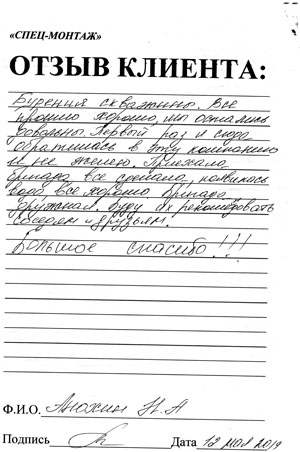 «СПЕЦ-МОНТАЖ»
ОТЗЫВ КЛИЕНТА:
Бурения скважины. Все
прошло хорошо, мы остались
довольны. Первый раз и сюда
обратились в эту компанию
и не жалею. Приехала
бригада все сделала, появилась
вода все хорошо бригада
дружная. Буду их рекомедовать
соседям и друзьям.
Большое спасибо!!!
Ф.И.О. Анохин Н.А
Подпись Дата 12 мая 2019